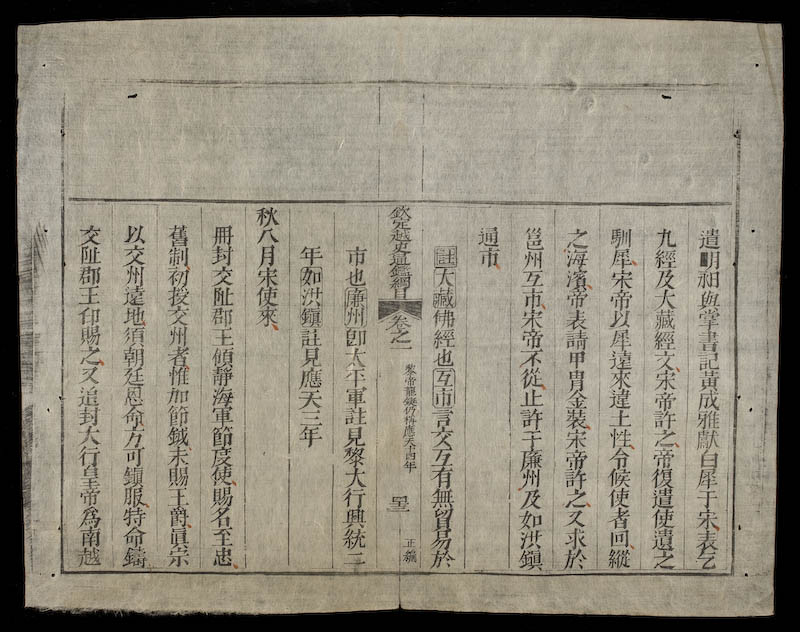 遣明昶與掌書記黃成雅獻白犀于宋表乞
九經及大藏經文宋帝許之帝復遣使遺之
馴犀宋帝以犀遠來違土性令候使者回縱
之海濱帝表請甲冑金裝宋帝許之又求於
邕州互市宋帝不從止許于廉州及如洪鎮
通市
註大藏佛經也互市言交互有無貿易於
欽定越史通鑑綱目 卷之一 黎帝龍鋌仍稱應天十四年 正編
市也廉州卽太平軍註見黎大行興統二
年如洪鎮註見應天三年
秋八月宋使來
冊封交阯郡王領靜海軍節度使賜名至忠
舊制初授交州者惟加節鉞未賜王爵眞宗
以交州遠地須朝廷恩命方可鎮服特命鑄
交阯郡王印賜之又追封大行皇帝爲南越